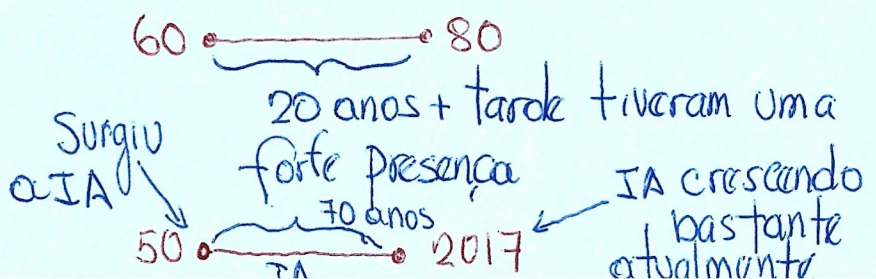 60 80
20 anos + tarde tiveram uma
forte presença
Surgiu
a IA
70 anos
50 2017
IA
IA crescendo
bastante
atualmente